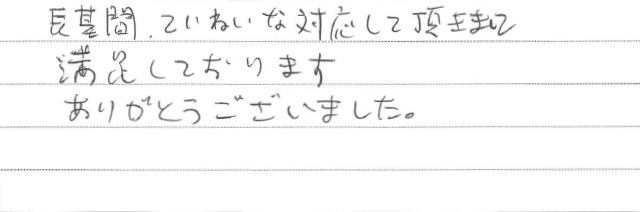 長基間、ていねいな対応して頂きまして
満足しております
ありがとうございました。